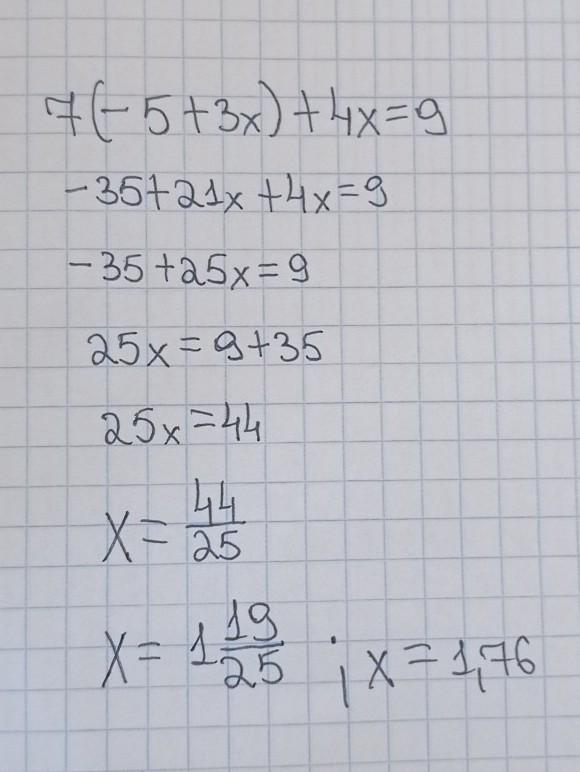 7(-5+3x)+4x=9
-35+21x+4x=9
-35+25x=9
25x=9+35
25x=44
x=44/25
x=1 19/25 ; x=1,76